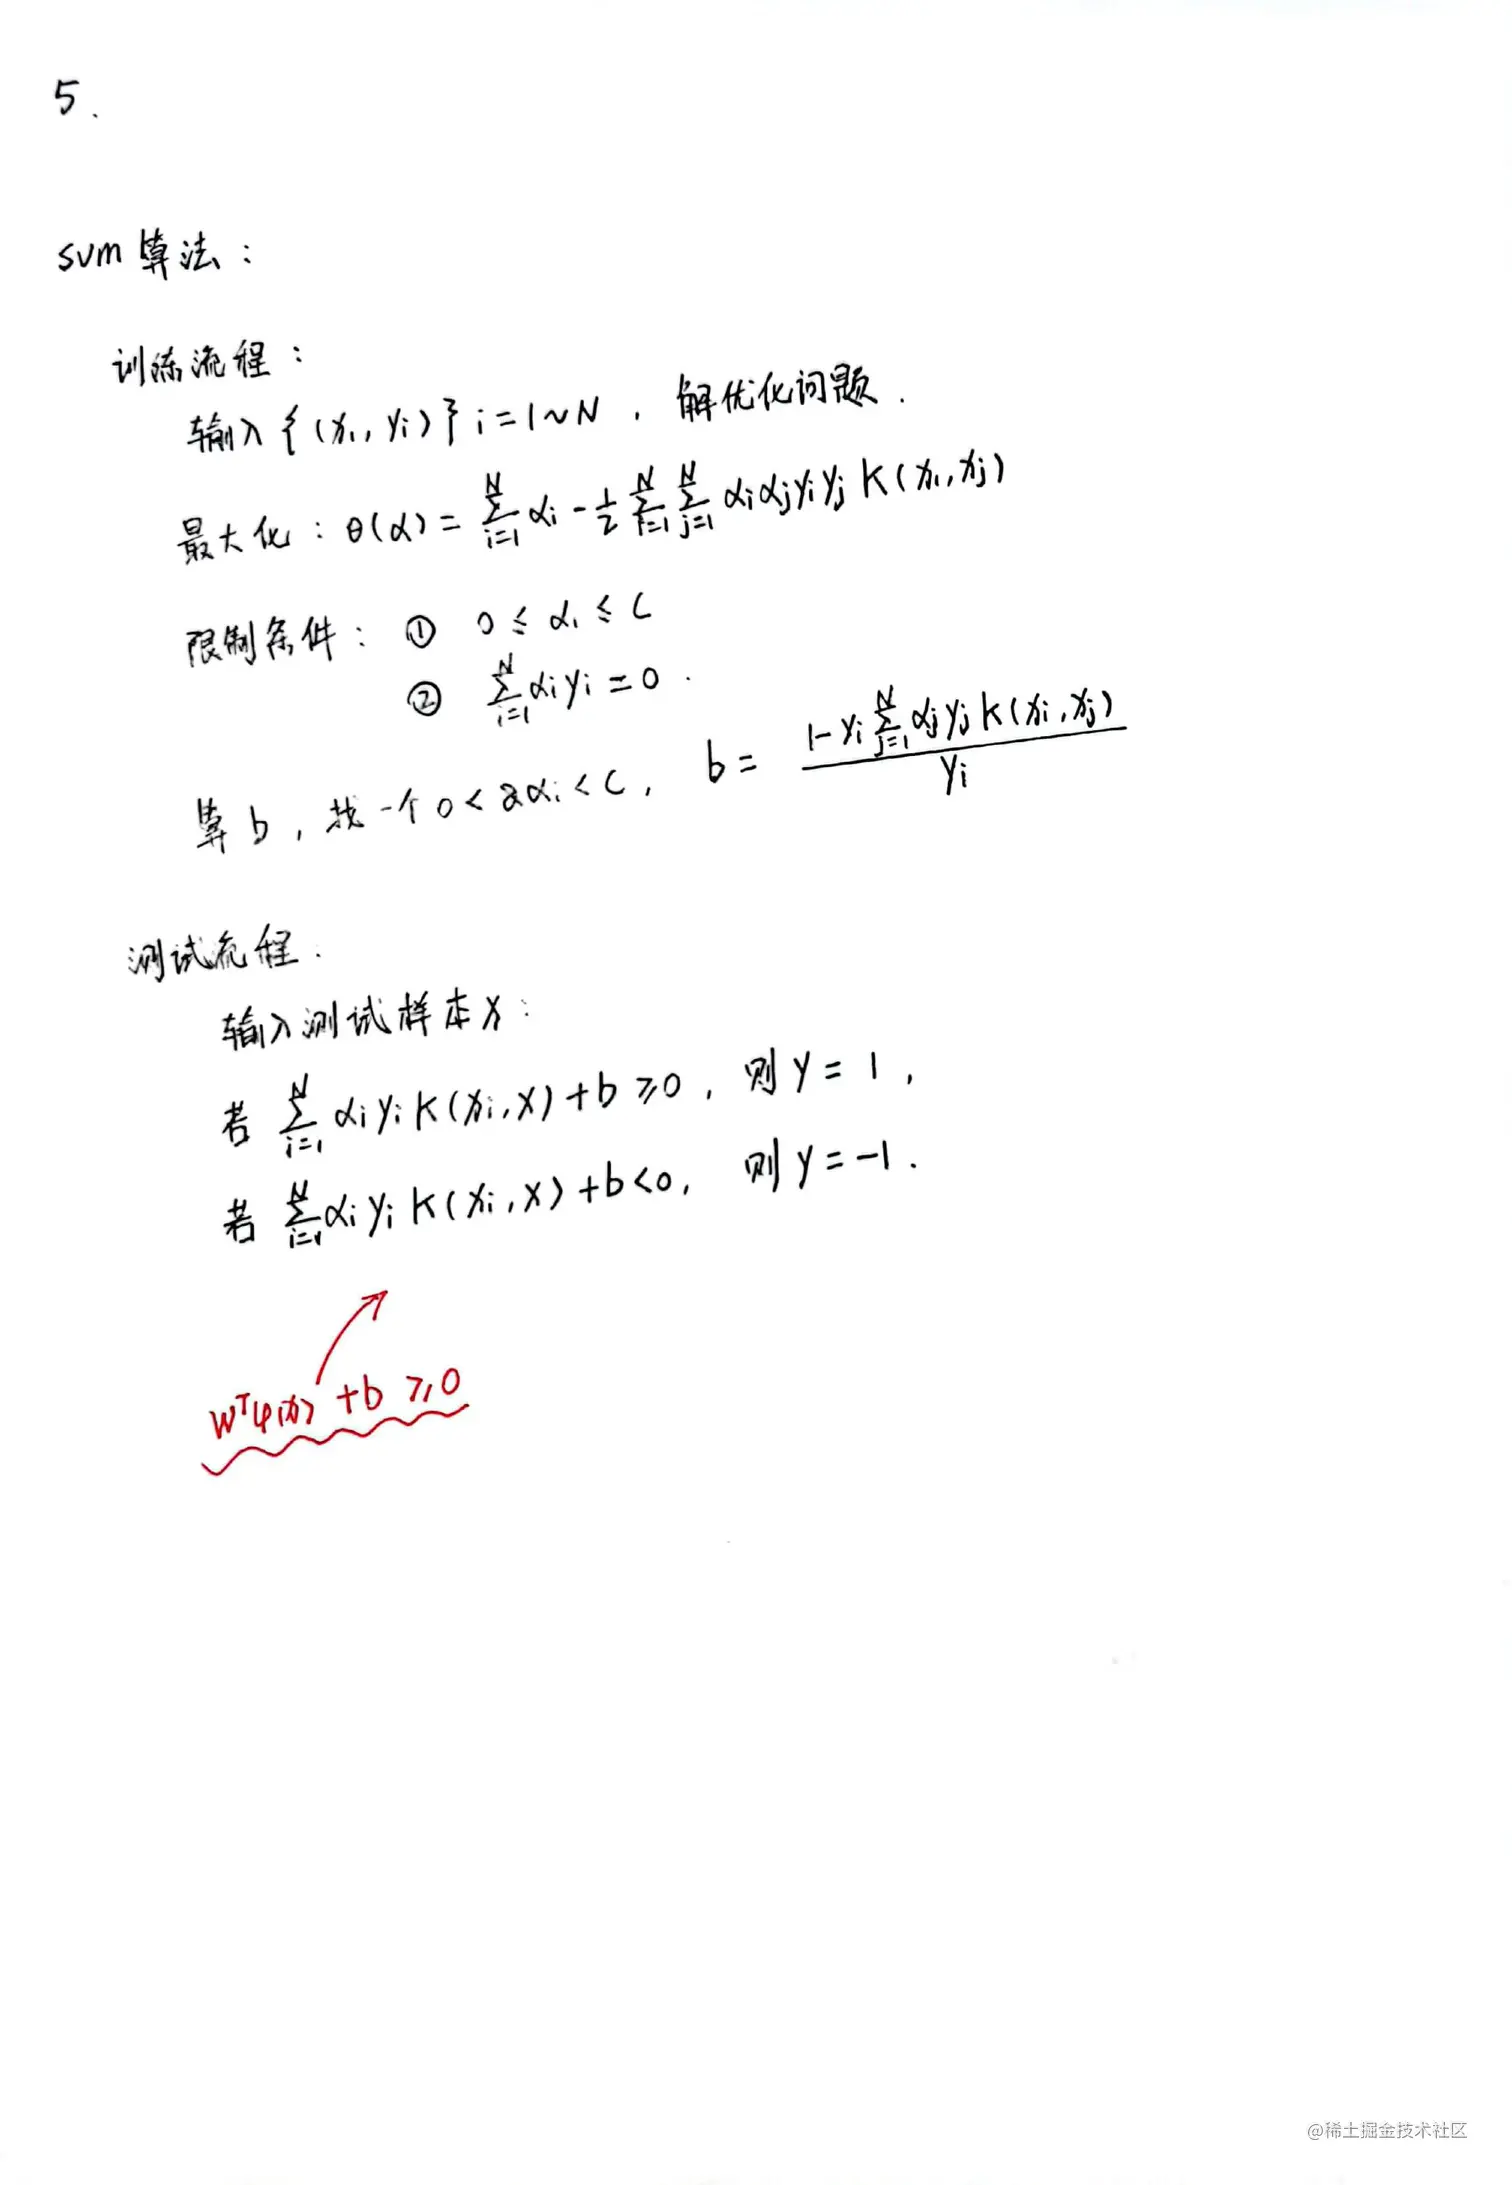 5.
svm 算法：
训练流程：
输入 {(xi, yi)} i=1~N ，解优化问题.
最大化：θ(α) = ∑_{i=1}^{N} αi - 1/2 ∑_{i=1}^{N} ∑_{j=1}^{N} αiαjyiyj K(xi, xj)
限制条件：① 0 ≤ αi ≤ C
② ∑_{i=1}^{N} αiyi = 0 .
算 b ，找一个 0 < 2αi < C ，b = (1 - yi ∑_{j=1}^{N} αjyj K(xi, xj)) / yi
测试流程.
输入测试样本X：
若 ∑_{i=1}^{N} αiyi K(xi, X) + b ≥ 0 ，则 y = 1 ，
若 ∑_{i=1}^{N} αiyi K(xi, X) + b < 0 ，则 y = -1 .
W^Tφ(x) + b ≥ 0
@稀土掘金技术社区